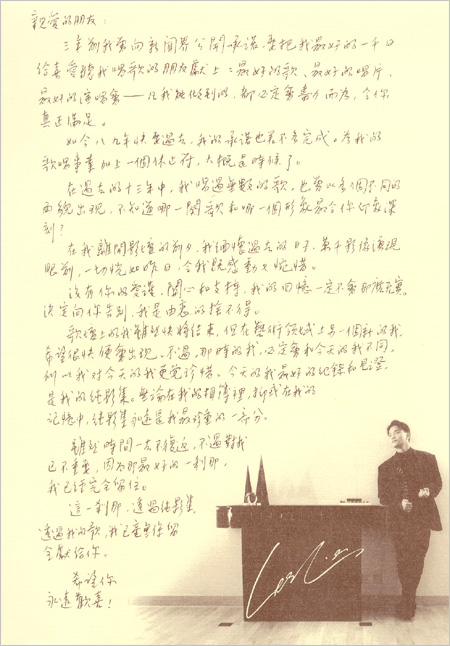 親愛的朋友：
三年前我曾向新聞界公開承諾，要把我最好的一千日
給喜愛聽我唱歌的朋友獻上：最好的歌、最好的唱片、
最好的演唱會——凡我能做到的，都必定會盡力而為，令你
真正滿足。
如今八九年快要過去，我的承諾也差不多完成。為我的
歌唱事業加上一個休止符，大概是時候了。
在過去的十三年中，我唱過無數的歌，也曾以多個不同的
面貌出現，不知道哪一闋歌和哪一個形象最令你印象深
刻？
在我離開歌壇的前夕，我緬懷過去的日子，萬千影像湧現
眼前，一切恍如昨日，令我既感動又惋惜。
沒有你的愛護、關心和支持，我的回憶一定不會那麼充實。
決定向你告別，我是由衷的捨不得。
歌壇上的我雖然快將結束，但在藝術領域上另一個新的我，
希望很快便會出現。不過，那時的我，必定會和今天的我不同，
所以我對今天的我更覺珍惜。今天的我最好的紀錄和見證
是我的結影集。無論在我的相簿裡，抑或在我的
記憶中，結影集永遠是我最珍重的一部分。
雖然時間一去不復返，不過對我
已不重要，因為那最好的一剎那，
我已經完全留住。
這一剎那，透過結影集
透過我的歌，我已毫無保留
全獻給你。
希望你
永遠歡喜！
Leslie